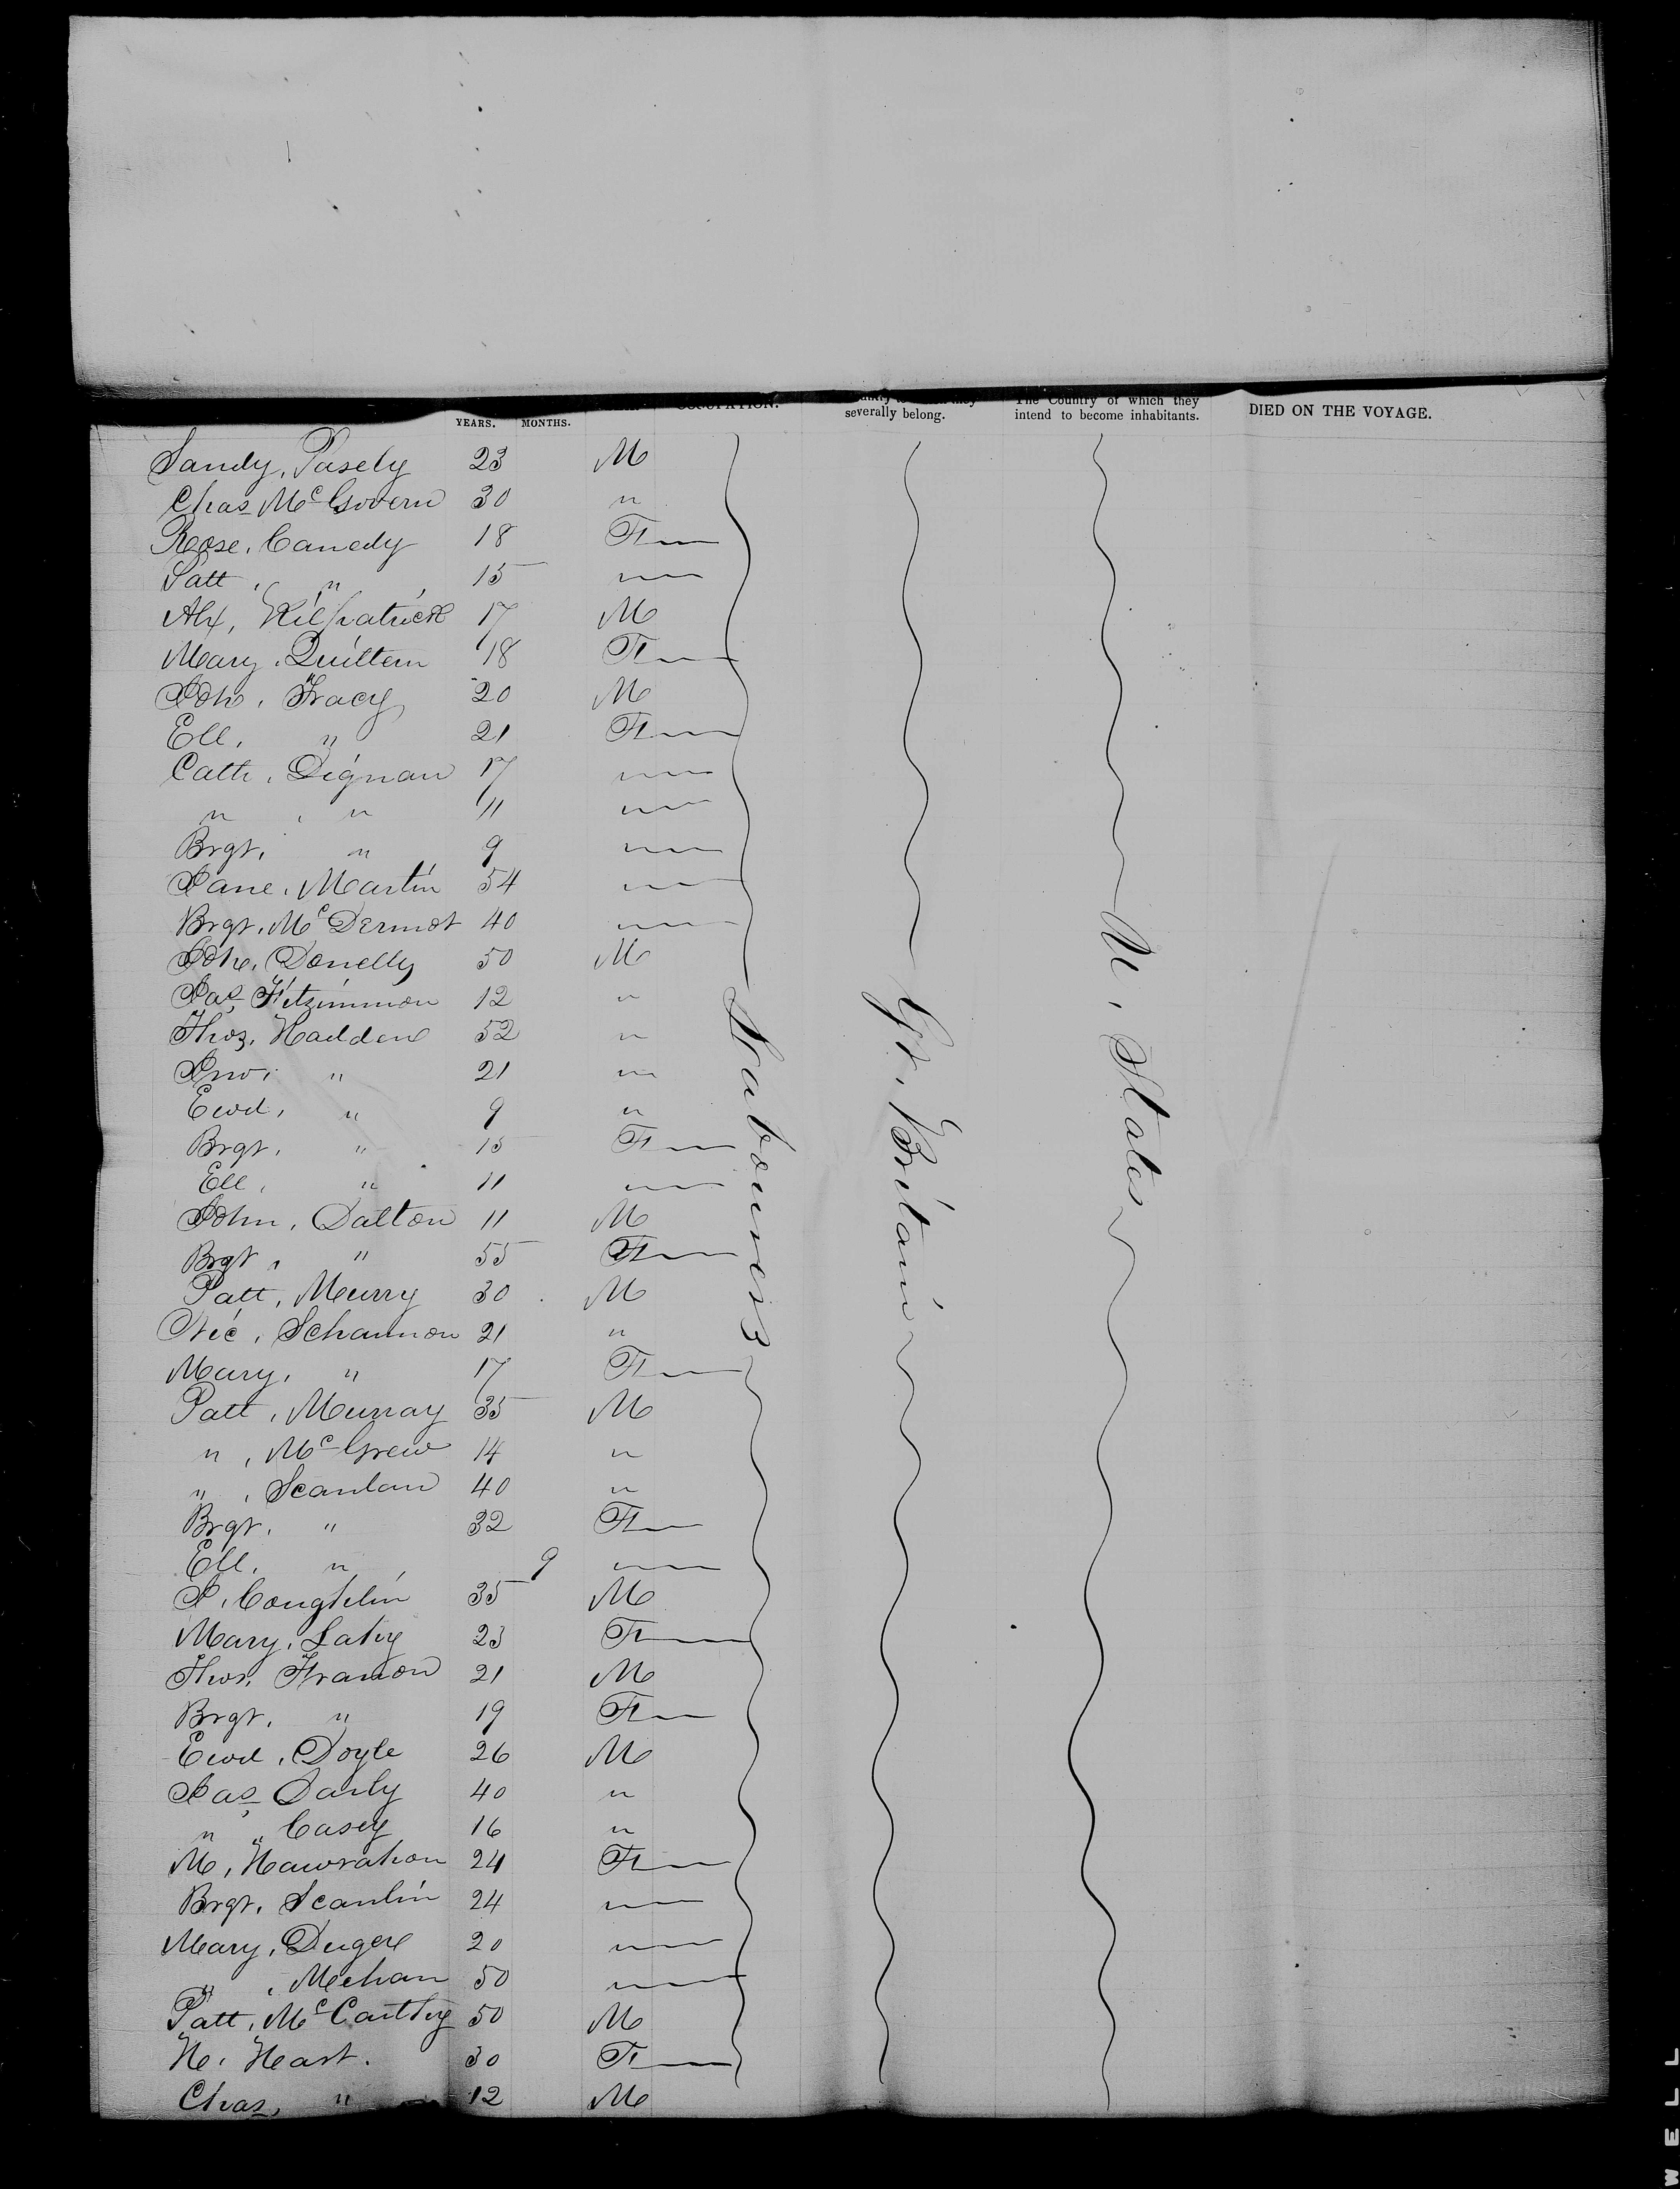 YEARS. MONTHS. OCCUPATION. severally belong. The Country of which they intend to become inhabitants. DIED ON THE VOYAGE.
Sandy, Pasely 23 M
Chas Mc Govern 30 "
Rose, Canedy 18 F
Patt, " 15 "
Alx, Kilpatrick 17 M
Mary, Quittern 18 F
Joh, Tracy 20 M
Ell, " 21 F
Cath, Dignan 17 "
" , " 11 "
Brgt, " 9 "
Jane, Martin 54 "
Brgt, Mc Dermot 40 "
Joh, Donelly 50 M
Jas Fitzimmon 12 "
Thos, Hadden 52 "
Jno, " 21 "
Ewd, " 9 "
Brgt, " 15 F
Ell, " 11 "
John, Dalton 11 M
Brgt, " 55 F
Patt, Murry 30 M
Nic, Schannon 21 "
Mary, " 17 F
Patt, Murray 35 M
" , Mc Grew 14 "
" , Scanlan 40 "
Brgt, " 32 F
Ell, " 9 "
J, Coughlin 35 M
Mary, Lahy 23 F
Thos, Franon 21 M
Brgt, " 19 F
Ewd, Doyle 26 M
Jas Darly 40 "
" , Casey 16 "
M, Hawrahon 24 F
Brgt, Scanlin 24 "
Mary, Dugel 20 "
" , Mechan 50 "
Patt, Mc Carthy 50 M
H, Hart. 30 F
Chas, " 12 M
Labourers
Gr, Britain
U, States
WELL